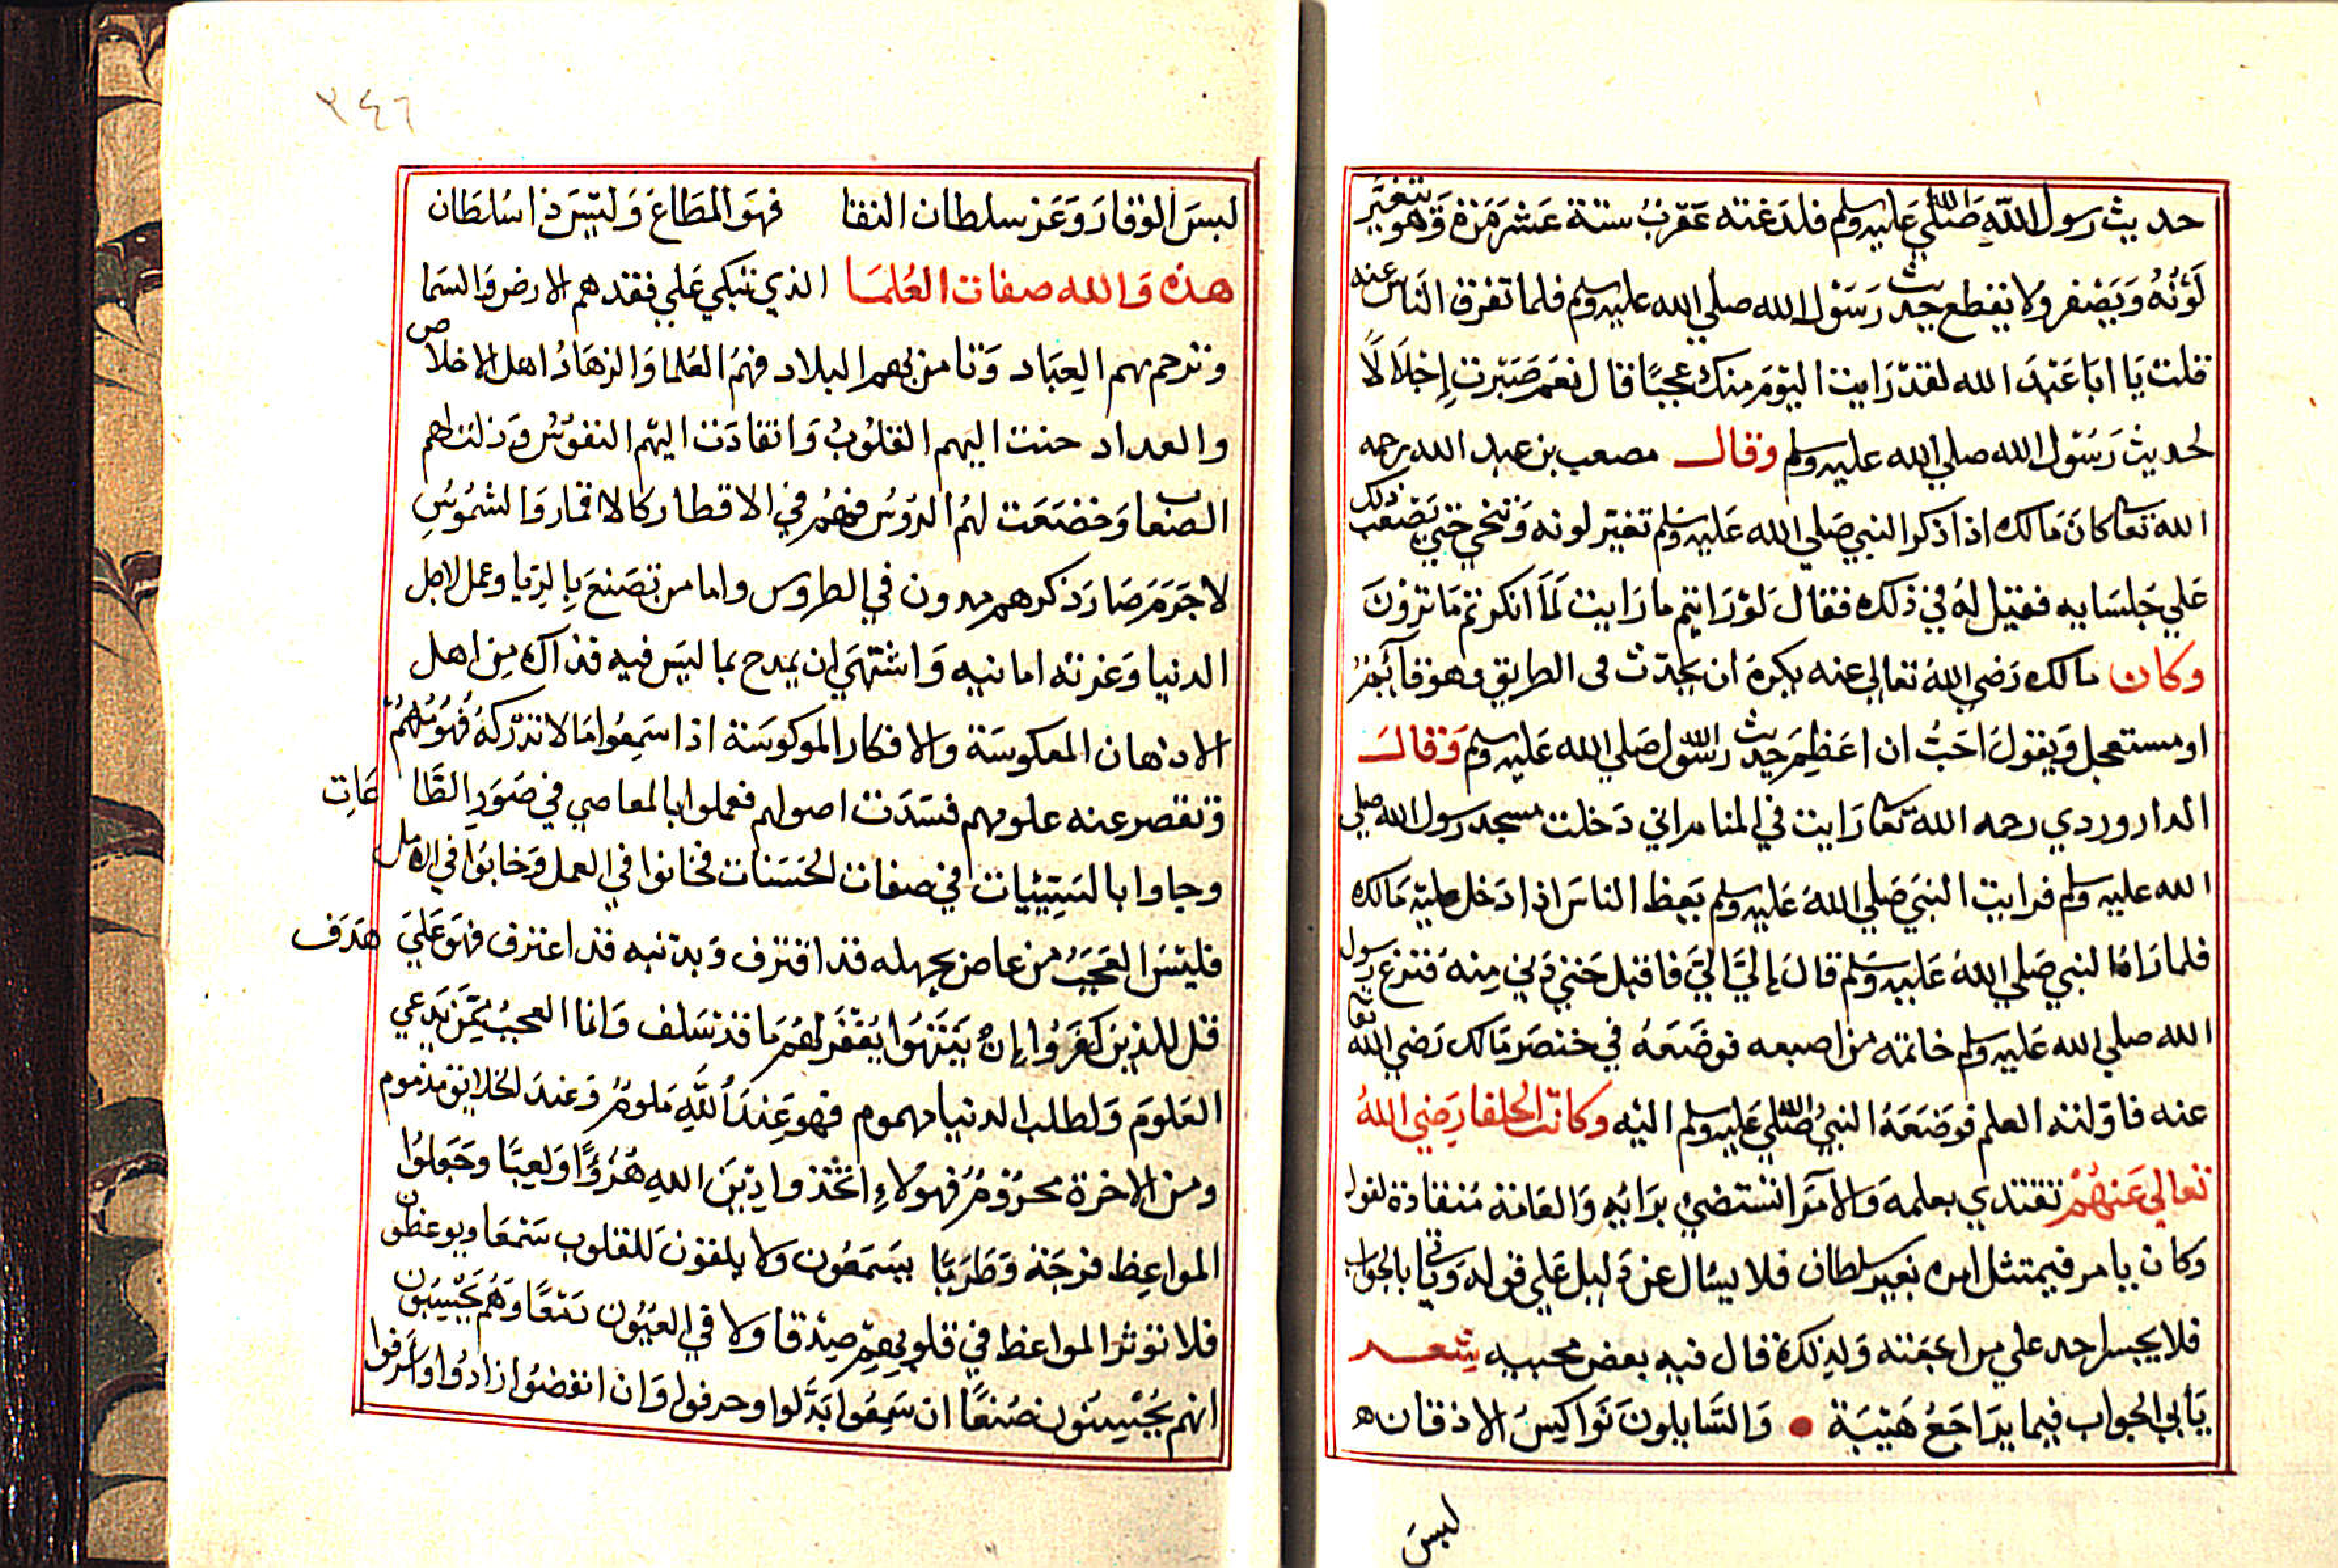 حديث رسول الله صلي الله عليه وسلم فلدغته عقرب ستة عشر مرة وهو يتغير
لونه ويصفر ولا يقطع حديث رسول الله صلي الله عليه وسلم فلما تفرق الناس عنه
قلت يا ابا عبد الله لقد رايت اليوم منك عجبًا قال نعم صبرت إجلالًا
لحديث رسول الله صلي الله عليه وسلم وقال مصعب بن عبد الله رحمه
الله تعا كان مالك اذا ذكر النبي صلي الله عليه وسلم تغير لونه وينحني حتي يصعب ذلك
علي جلسايه فقيل له في ذلك فقال لو رايتم ما رايت لما انكرتم ما ترون
وكان مالك رضي الله تعالي عنه يكره ان يحدث في الطريق وهو قآيم
او مستعجل ويقول احب ان اعظم حديث رسول الله صلي الله عليه وسلم وقال
الداروردي رحمه الله تعا رايت في المنام اني دخلت مسجد رسول الله صلي
الله عليه وسلم فرايت النبي صلي الله عليه وسلم يعظ الناس اذا دخل عليه مالك
فلما راه النبي صلي الله عليه وسلم قال إليَّ اليَّ فاقبل حتي دني منه فنزع رسول
الله صلي الله عليه وسلم خاتمه من اصبعه فوضعه في خنصر مالك رضي الله تعا
عنه فاولته العلم فوضعه النبي صلي الله عليه وسلم اليه وكانت الخلفا رضي الله
تعالي عنهم تقتدي بعلمه والامرا تستضيء برايه والعامة منقادة لقوله
وكان يامر فيمتثل امره بغير سلطان فلا يسال عن دليل علي قوله وياتي بالجواب
فلا يجسر احد علي مراجعته ولذلك قال فيه بعض محبيه شعر
يأبي الجواب فيما يراجع هيبة • والسايلون نواكس الاذقان ه
لبس
٣٤٦
لبس الوقار وعز سلطان التقا فهو المطاع وليس ذا سلطان
هذه والله صفات العلما الذي تبكي علي فقدهم الارض والسما
وترحم بهم العباد وتامن بهم البلاد فهم العلما والزهاد اهل الاخلاص
والعداد حنت اليهم القلوب وانقادت اليهم النفوس وذلت لهم
الصعاب وخضعت لهم الروس فهم في الاقطار كالاقمار والشموس
لا جرم صار ذكرهم مدون في الطروس واما من تصنع بالريا وعمل لاجل
الدنيا وغرته امانيه واشتهي ان يمدح بما ليس فيه فذاك من اهل
الاذهان المعكوسة والافكار الموكوسة اذا سمعوا ما لا تدركه فهومهم
وتقصر عنه علومهم فسدت اصولهم فعملوا بالمعاصي في صور الطاعات
وجاوا بالسيئيات في صفات الحسنات فخانوا في العمل وخابوا في الامل
فليس العجب من عاص بجهله قد اقترف وبذنبه قد اعترف فهو علي هدف
قل للذين كفروا إن ينتهوا يغفر لهم ما قد سلف وانما العجب ممن يدعي
العلوم ولطلب الدنيا مهموم فهو عند الله ملوم وعند الخلايق مذموم
ومن الاخرة محروم فهولاء اتخذوا دين الله هزؤًا ولعبًا وجعلوا
المواعظ فرجة وطربًا يسمعون ولا يلقون للقلوب سمعا ويوعظون
فلا تؤثر المواعظ في قلوبهم صدقا ولا في العيون دمعًا وهم يحسبون
انهم يحسنون صنعًا ان سمعوا بدلوا وحرفوا وان انفضوا زادوا واسرفوا